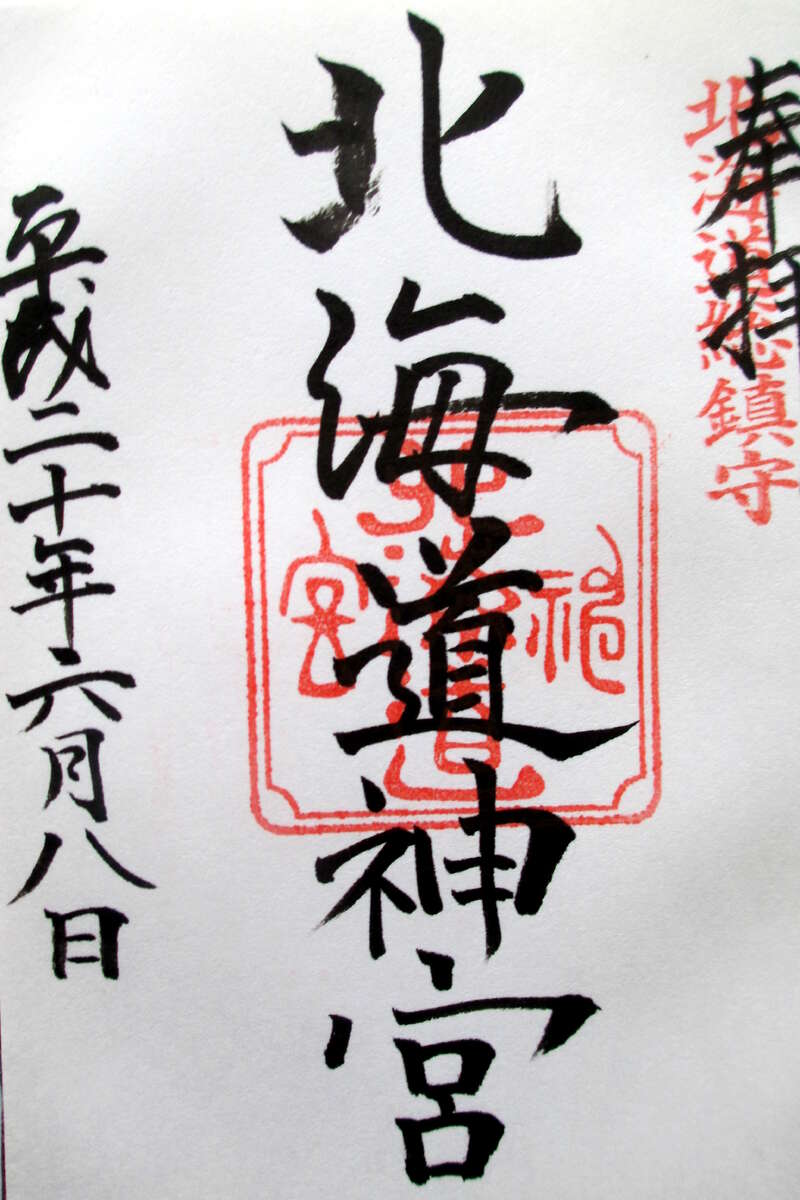 奉拝
北海道総鎮守
北海道神宮
平成二十年六月八日